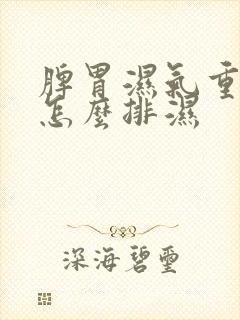 脾胃濕氣重
怎麼排濕
深海碧璽